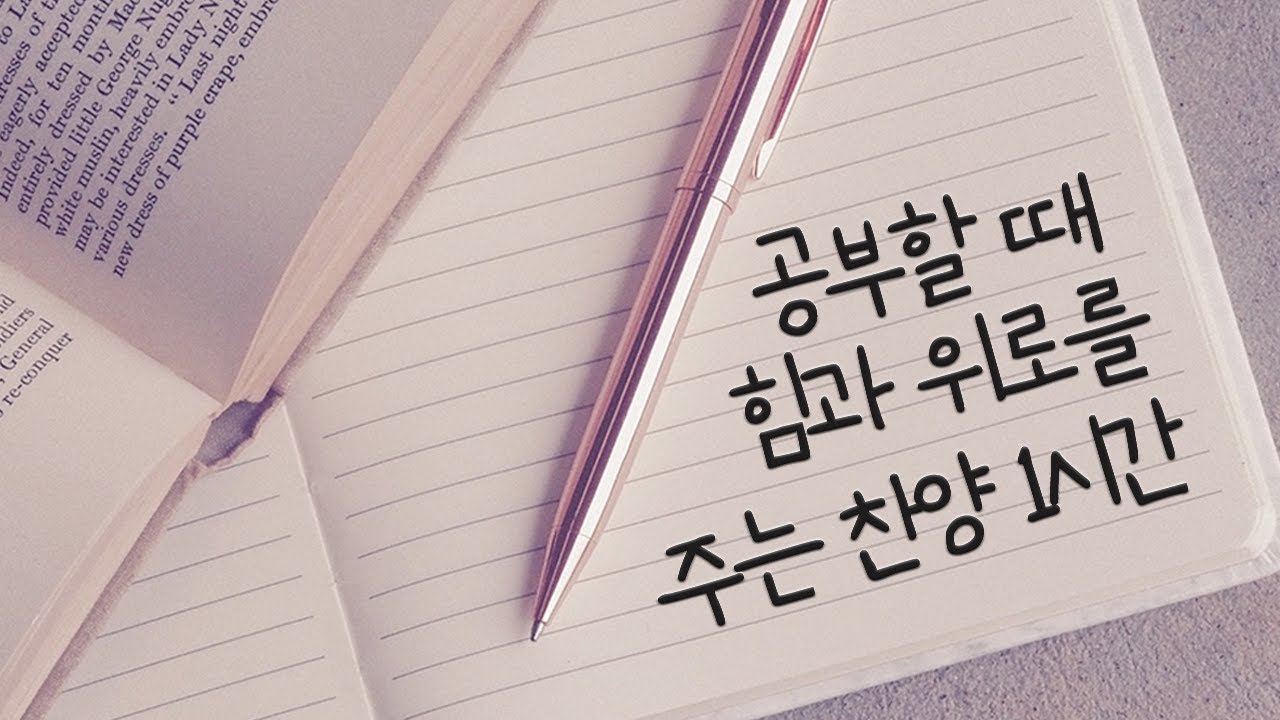 to La
dresses of th
eagerly accepted
Indeed, for ten months
entirely dressed by Mac
provided little George Nug
white muslin, heavily embro
may be interested in Lady N
various dresses. “ Last night
new dress of purple crape, embro
diers
, General
re-conquer
공부할 때
힘과 위로를
주는 찬양 1시간